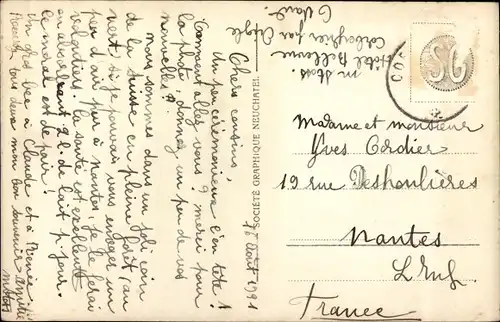 Chers cousins,
Un peu cérémonieux l'en tête !
Comment allez vous ? merci pour
la photo, donnez un peu de vos
nouvelles.
nous sommes dans un joli coin
de la Suisse en pleine forêt, au
vert, si je pouvais vous envoyer un
peu d'air pur à nantes, je le ferai
volontiers. La santé est excellente
en absorbant 2 l. de lait p. jour.
Le moral est de pair !
Un gros bec à Claude et à
recevez tous deux mon bon souvenir
18 août 1921
SOCIÉTÉ GRAPHIQUE NEUCHATEL
Hôtel Bellevue
Corbeyrier par Aigle
Vaud.
Madame et monsieur
Yves Cordier
19 rue Deshoulières
Nantes
L. Inf.
France